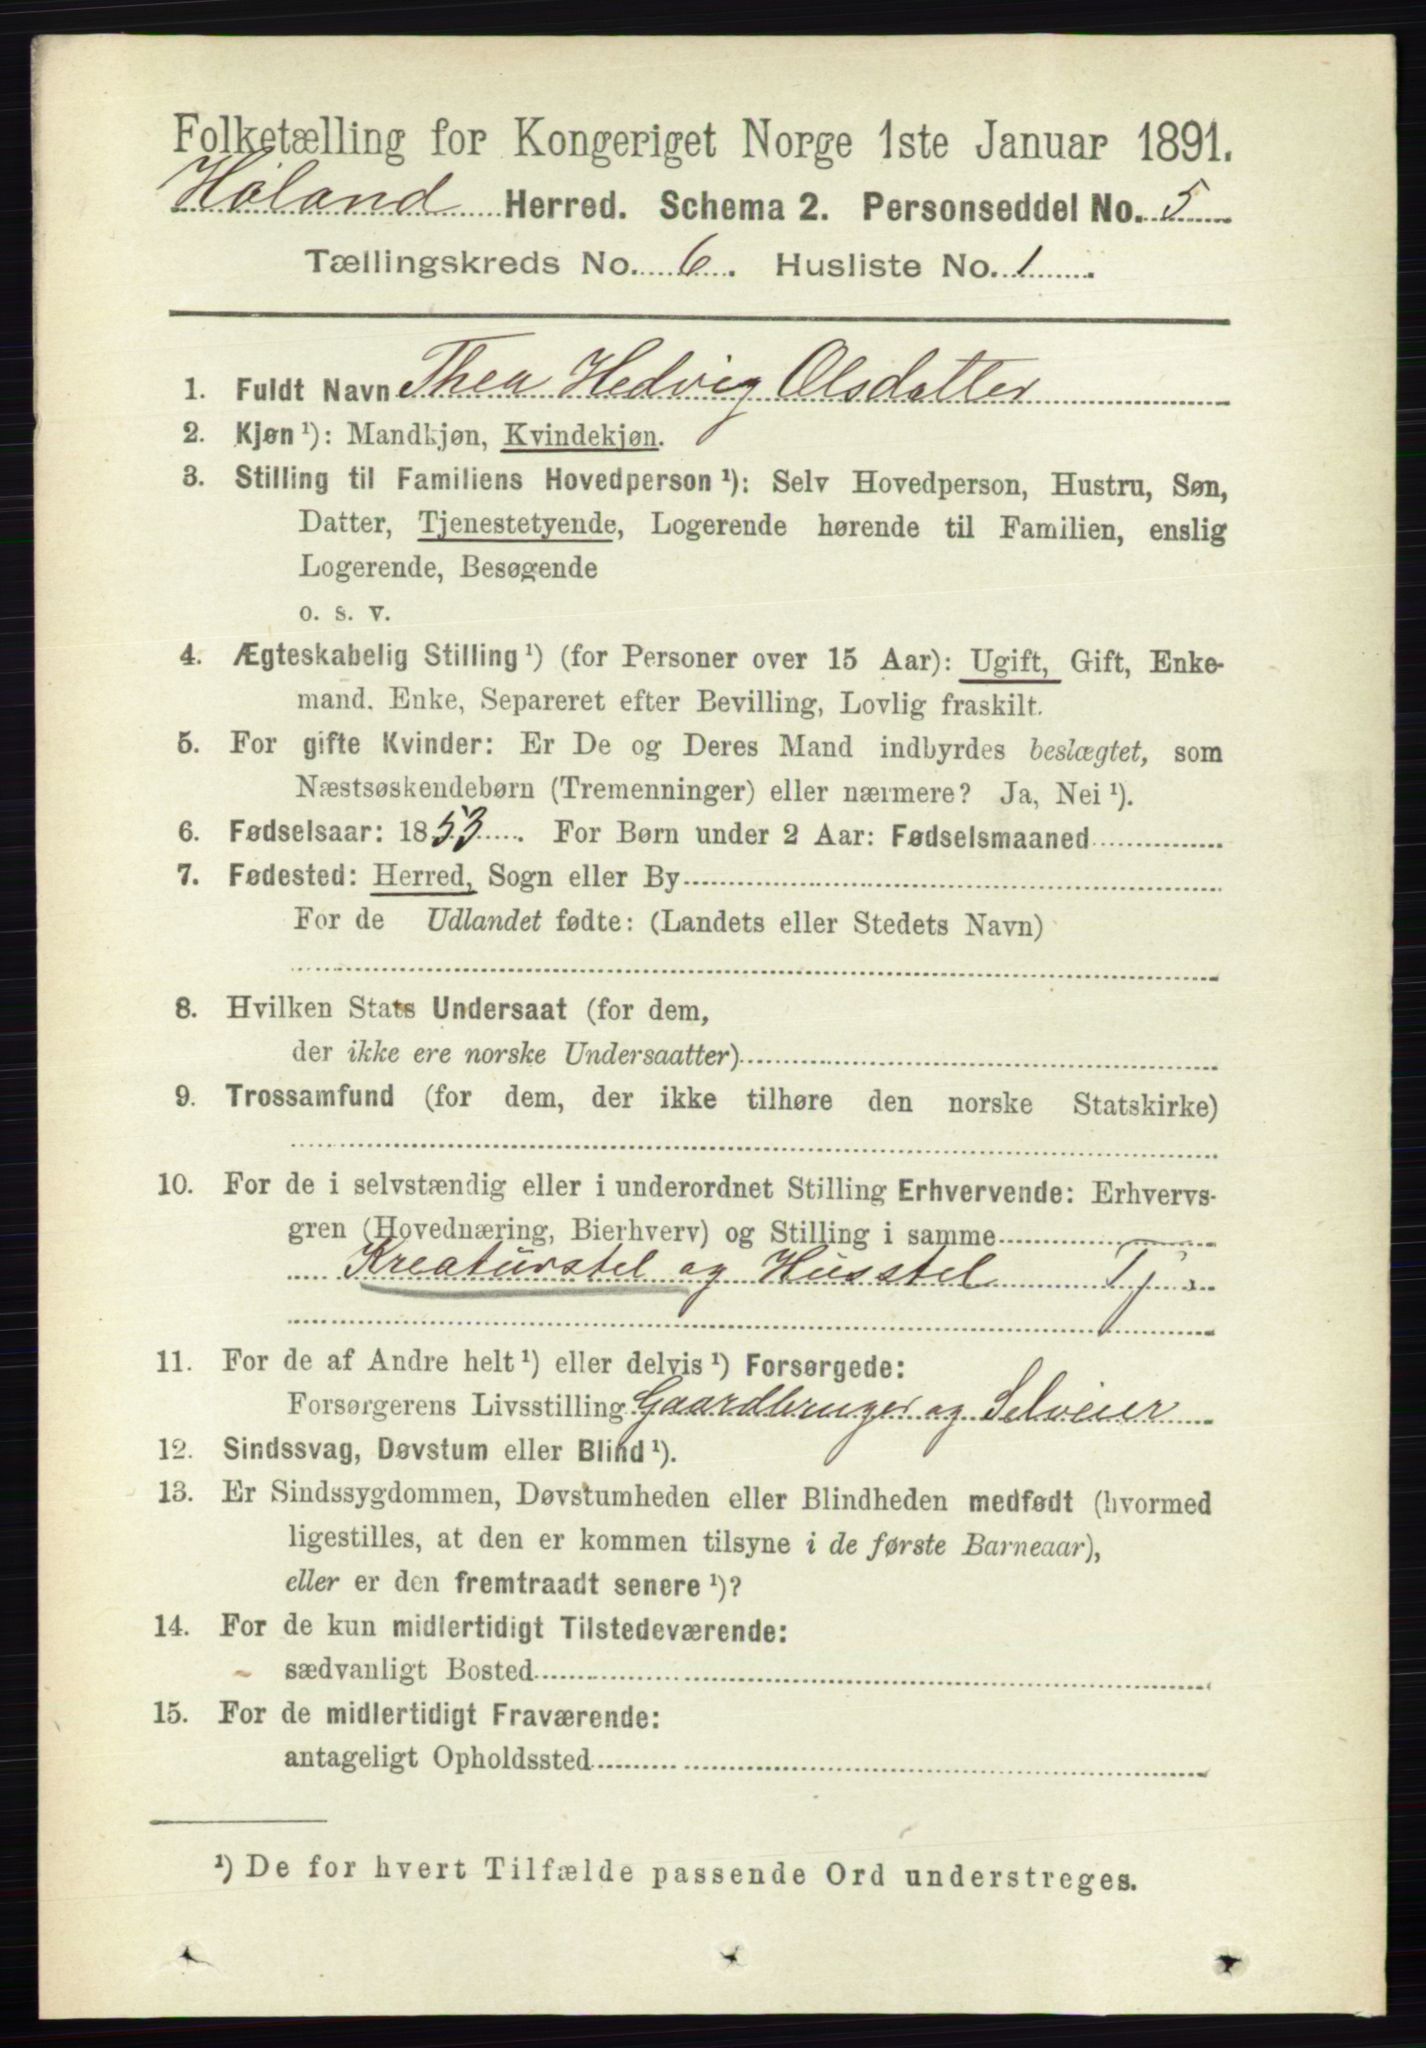 Folketælling for Kongeriget Norge 1ste Januar 1891.
Høland Herred. Schema 2. Personseddel No. 5
Tællingskreds No. 6. Husliste No. 1.
1. Fuldt Navn Thea Hedvig Olsdatter
2. Kjøn ¹): Mandkjøn, Kvindekjøn.
3. Stilling til Familiens Hovedperson ¹): Selv Hovedperson, Hustru, Søn,
Datter, Tjenestetyende, Logerende hørende til Familien, enslig
Logerende, Besøgende
o. s. v.
4. Ægteskabelig Stilling ¹) (for Personer over 15 Aar): Ugift, Gift, Enke-
mand, Enke, Separeret efter Bevilling, Lovlig fraskilt.
5. For gifte Kvinder: Er De og Deres Mand indbyrdes beslægtet, som
Næstsøskendebørn (Tremenninger) eller nærmere? Ja, Nei ¹).
6. Fødselsaar: 1853. For Børn under 2 Aar: Fødselsmaaned
7. Fødested: Herred, Sogn eller By
For de Udlandet fødte: (Landets eller Stedets Navn)
8. Hvilken Stats Undersaat (for dem,
der ikke ere norske Undersaatter)
9. Trossamfund (for dem, der ikke tilhøre den norske Statskirke)
10. For de i selvstændig eller i underordnet Stilling Erhvervende: Erhvervs-
gren (Hovednæring, Bierhverv) og Stilling i samme
Kreaturstel og Husstel Tj.
11. For de af Andre helt ¹) eller delvis ¹) Forsørgede:
Forsørgerens Livsstilling Gaardbruger og Selveier
12. Sindssvag, Døvstum eller Blind ¹).
13. Er Sindssygdommen, Døvstumheden eller Blindheden medfødt (hvormed
ligestilles, at den er kommen tilsyne i de første Barneaar),
eller er den fremtraadt senere ¹)?
14. For de kun midlertidigt Tilstedeværende:
sædvanligt Bosted
15. For de midlertidigt Fraværende:
antageligt Opholdssted
¹) De for hvert Tilfælde passende Ord understreges.